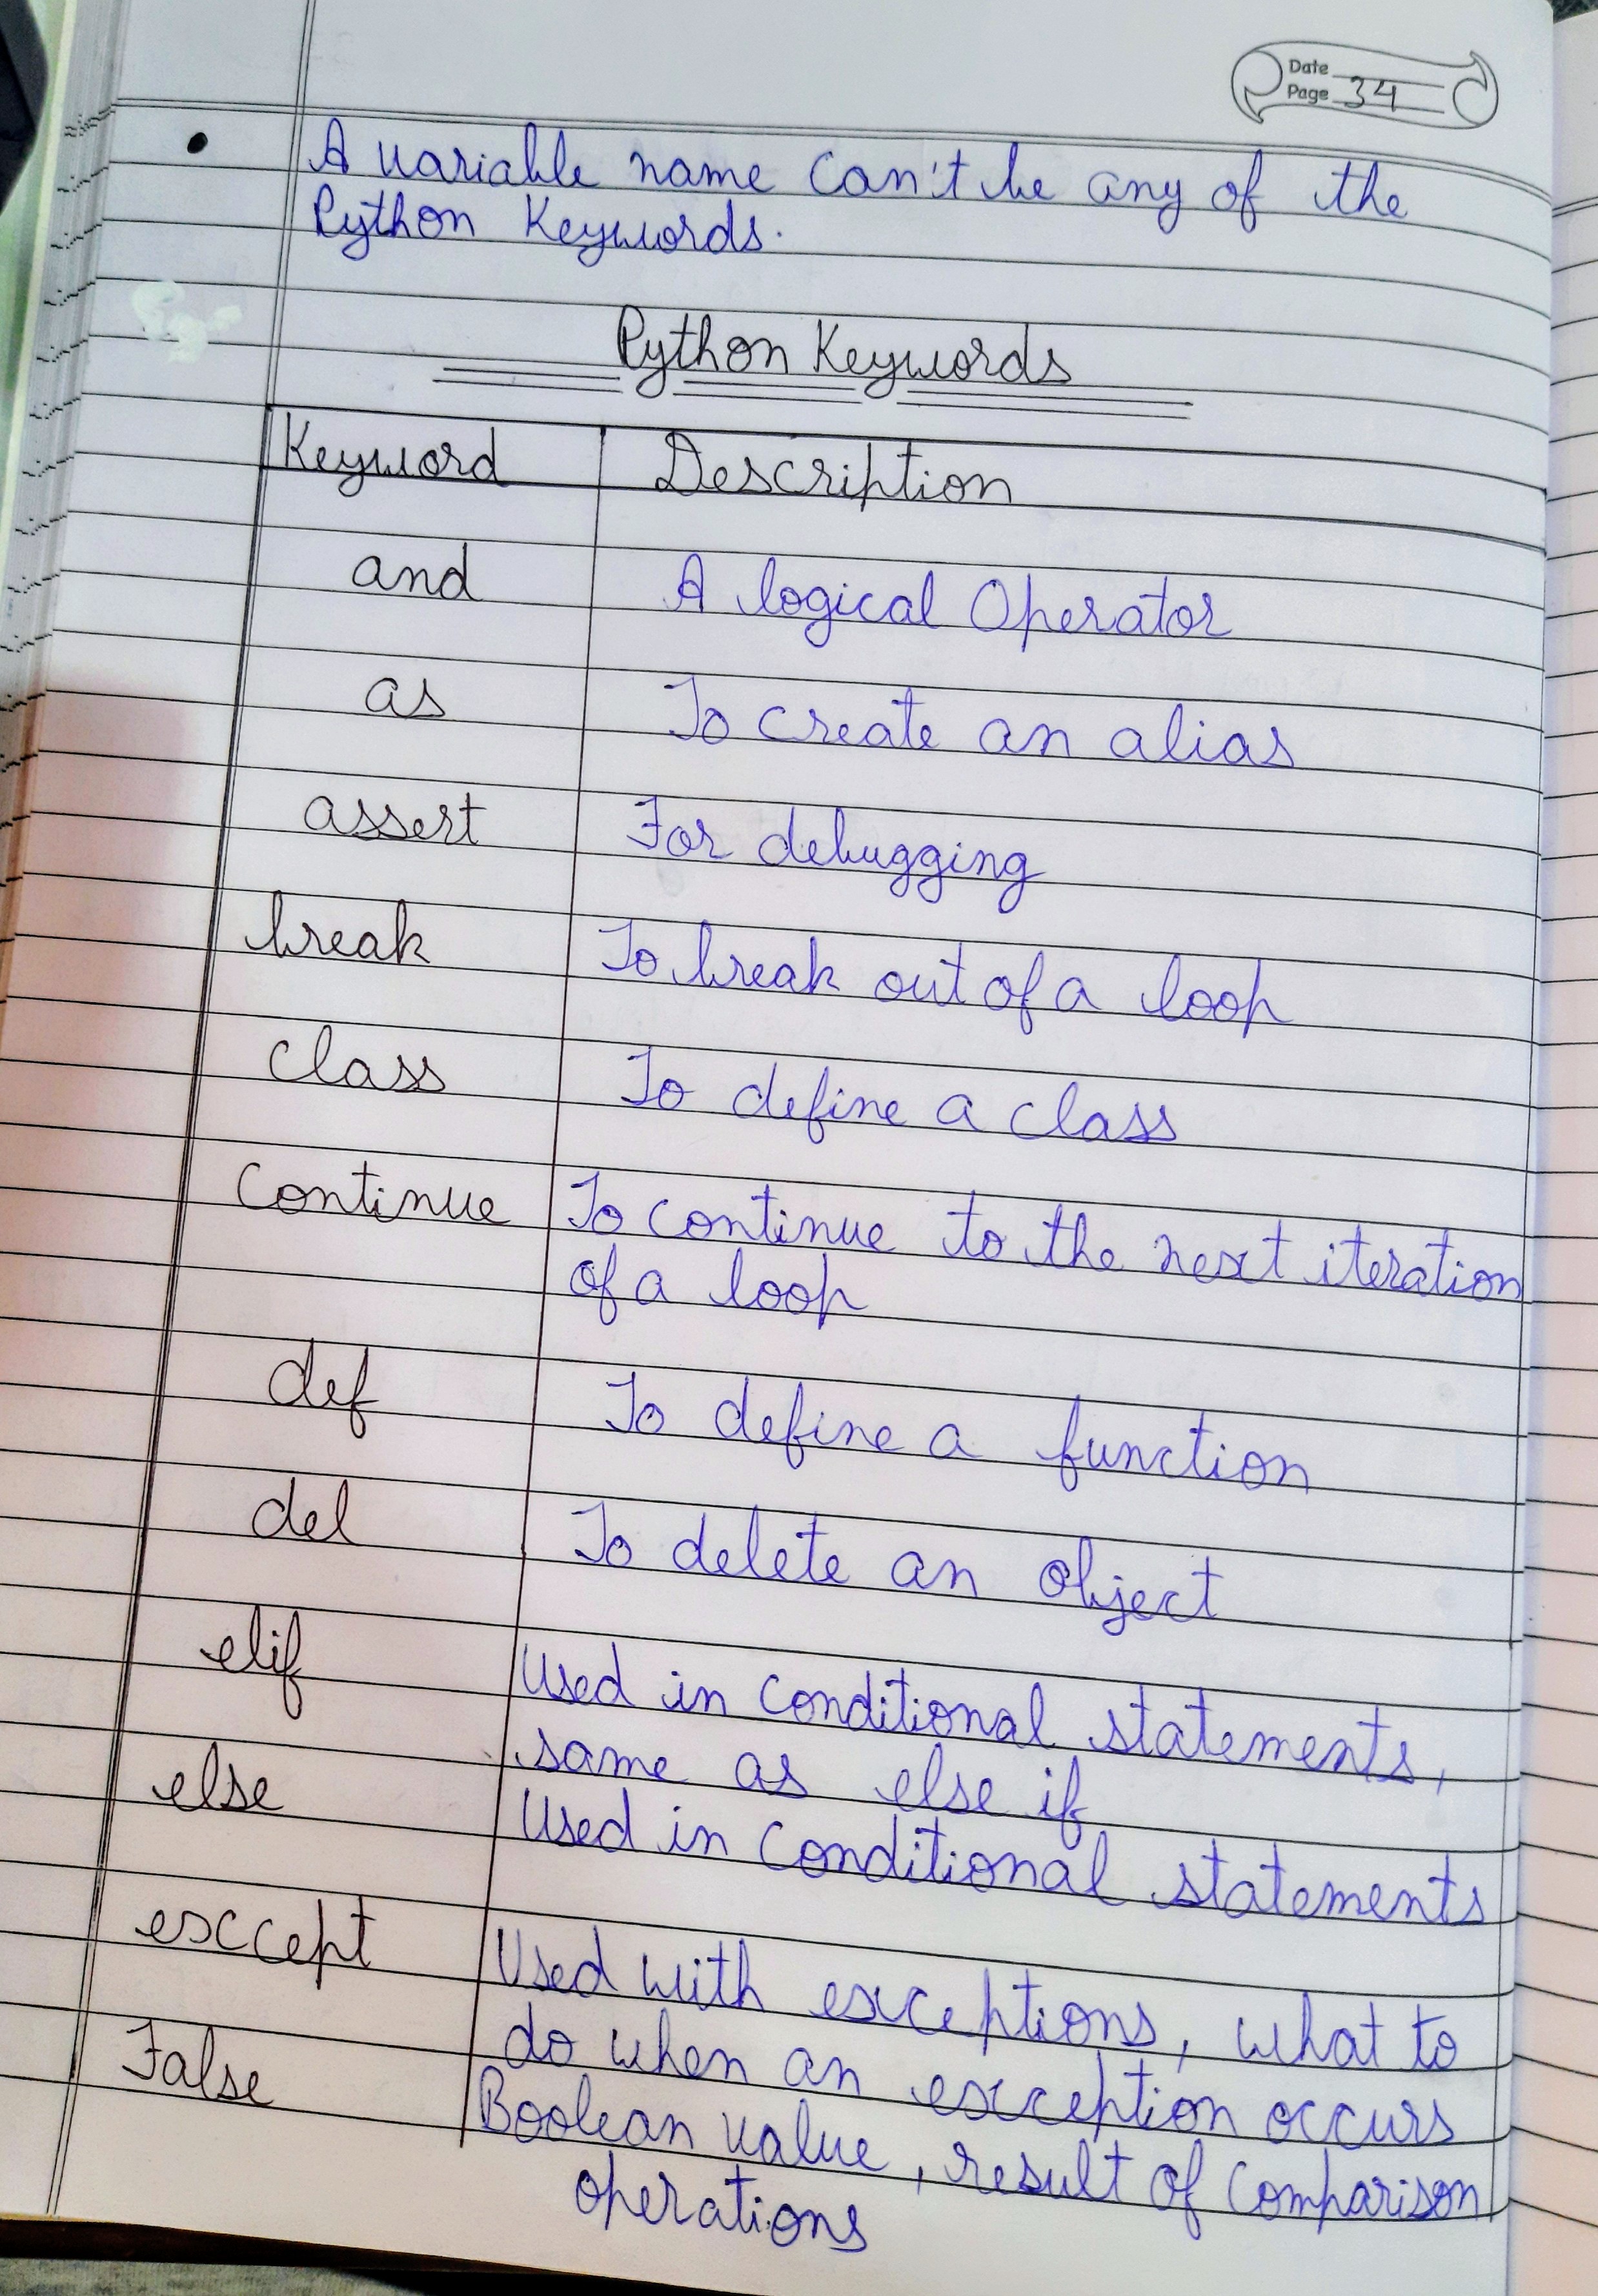 Date
Page 34
• A variable name can't be any of the
Python Keywords.
Python Keywords
Keyword Description
and A logical Operator
as To create an alias
assert For debugging
break To break out of a loop
class To define a class
continue To continue to the next iteration
of a loop
def To define a function
del To delete an object
elif Used in conditional statements,
same as else if
else Used in conditional statements
except Used with exceptions, what to
do when an exception occurs
False Boolean value, result of comparison
operations